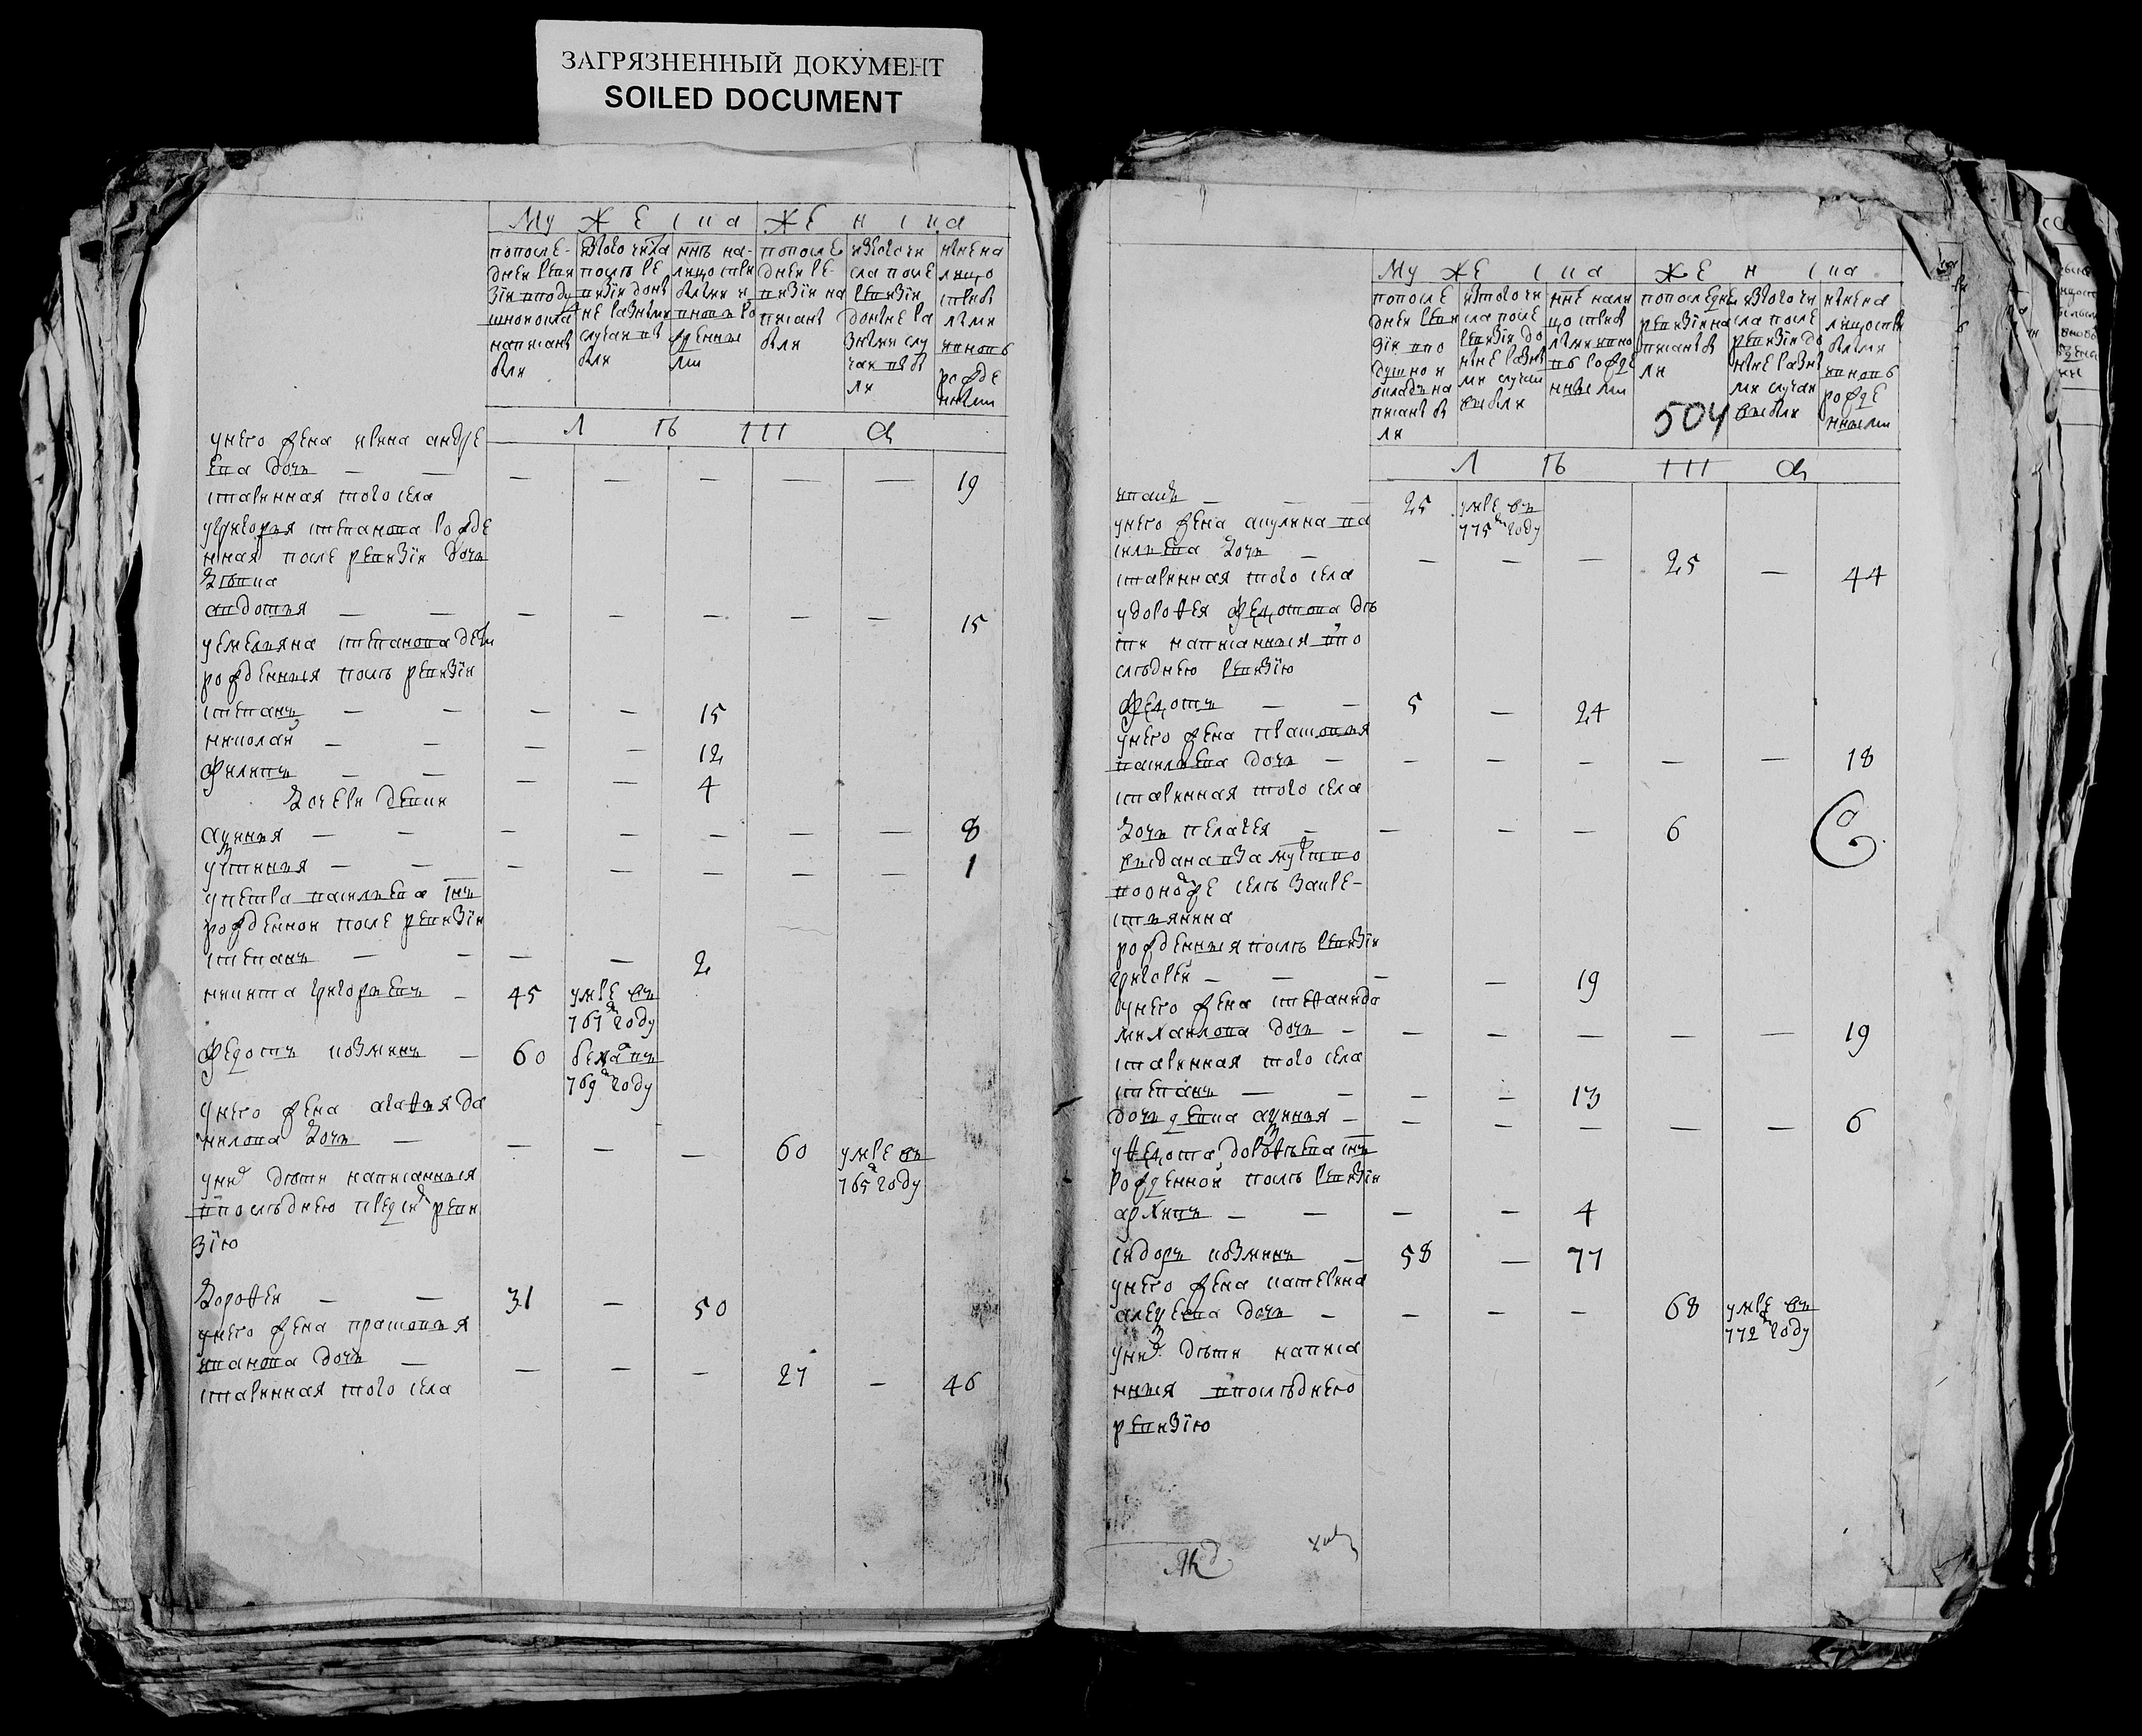 ЗАГРЯЗНЕННЫЙ ДОКУМЕНТ
SOILED DOCUMENT
Му Ж Е ска Ж Е н ска
попосле-
дней реви
зіи вподу
шномокла
написанъ
были
изтого числа
послъ ре
визіи доны
не разными
случаи вы
были
ннъ на-
лицо сприбылыми и
вновь ро
жденны
ми
попосле
дней ре-
визіи на
писаны
были
изтого чи
сла после
ревизіи
донынера
зными слу
чаи выбы
ли
нынена
лицо
сприбы
лыми
ивновь
рожде
нными
Л Ѣ Т А
унего жена ирина андре
ева дочь — — — — — — — 19
старинная того села
угригорья степанова рожде
нная после ревизіи дочь
девка
авдотья — — — — — — — 15
уемельяна степанова дети
рожденныя послъ ревизіи
степанъ — — — — 15
николай — — — — 12
филипъ — — — — 4
дочери девки
аксинья — — — — — — — 8
устинья — — — — — — — 1
упетра васильева снъ
рожденной после ревизіи
степанъ — — — — 2
никита григорьевъ — 45 умре въ
767м году
федотъ козминъ — 60
769м году
унего жена агафья да
нилова дочь — — — — 60 умре въ
765м году
унихъ дъти написанныя
впослъднею предсихъ реви
зію
дорофей — — 31 — 50
унего жена прасковья
иванова дочь — — — — 27 — 46
старинная того села
Му ЖЕ ска ЖЕ н ска
попосле
дней реви
зіи впо
душно и
окладъ на
писаны бы
ли
изтого чи
сла после
ревизіи до
ныне разны
ми случаи
выбыли
ннъ нали
цо сприбы
лыми ивно
въ рожде
нными
попоследне
ревизіи на
писаны бы
ли
504
изтого чи
сла после
ревизіи до
ныне разны
ми случаи
выбыли
нынена
лицо сприбы
былыми
ивновь
рожде
нными
Л Ѣ Т А
иванъ — — — 25 умре въ
775м году
унего жена акулина ва
сильева дочь — — — — 25 — 44
старинная того села
удорофея федотова дъ
ти написанныя впо
слъднею ревизію
федотъ — — 5 — 24
унего жена прасковья
васильева дочь — — — — — — 18
старинная того села
дочь пелагея — — — — 6
выдана взамужство
селъ закре-
стьянина
рожденныя послъ ревизіи
григорей — — — — 19
унего жена стефанида
михайлова дочь — — — — — — 19
старинная того села
степанъ — — — — 13
дочь девка аксинья — — — — — — 6
уфедота дорофъева снъ
рожденной послъ ревизіи
архипъ — — — — 4
сидоръ козминъ — 58 — 77
унего жена катерина
алексеева дочь — — — — 68 умре въ
772м году
унихъ дъти написа
нныя впослъднего
ревизію